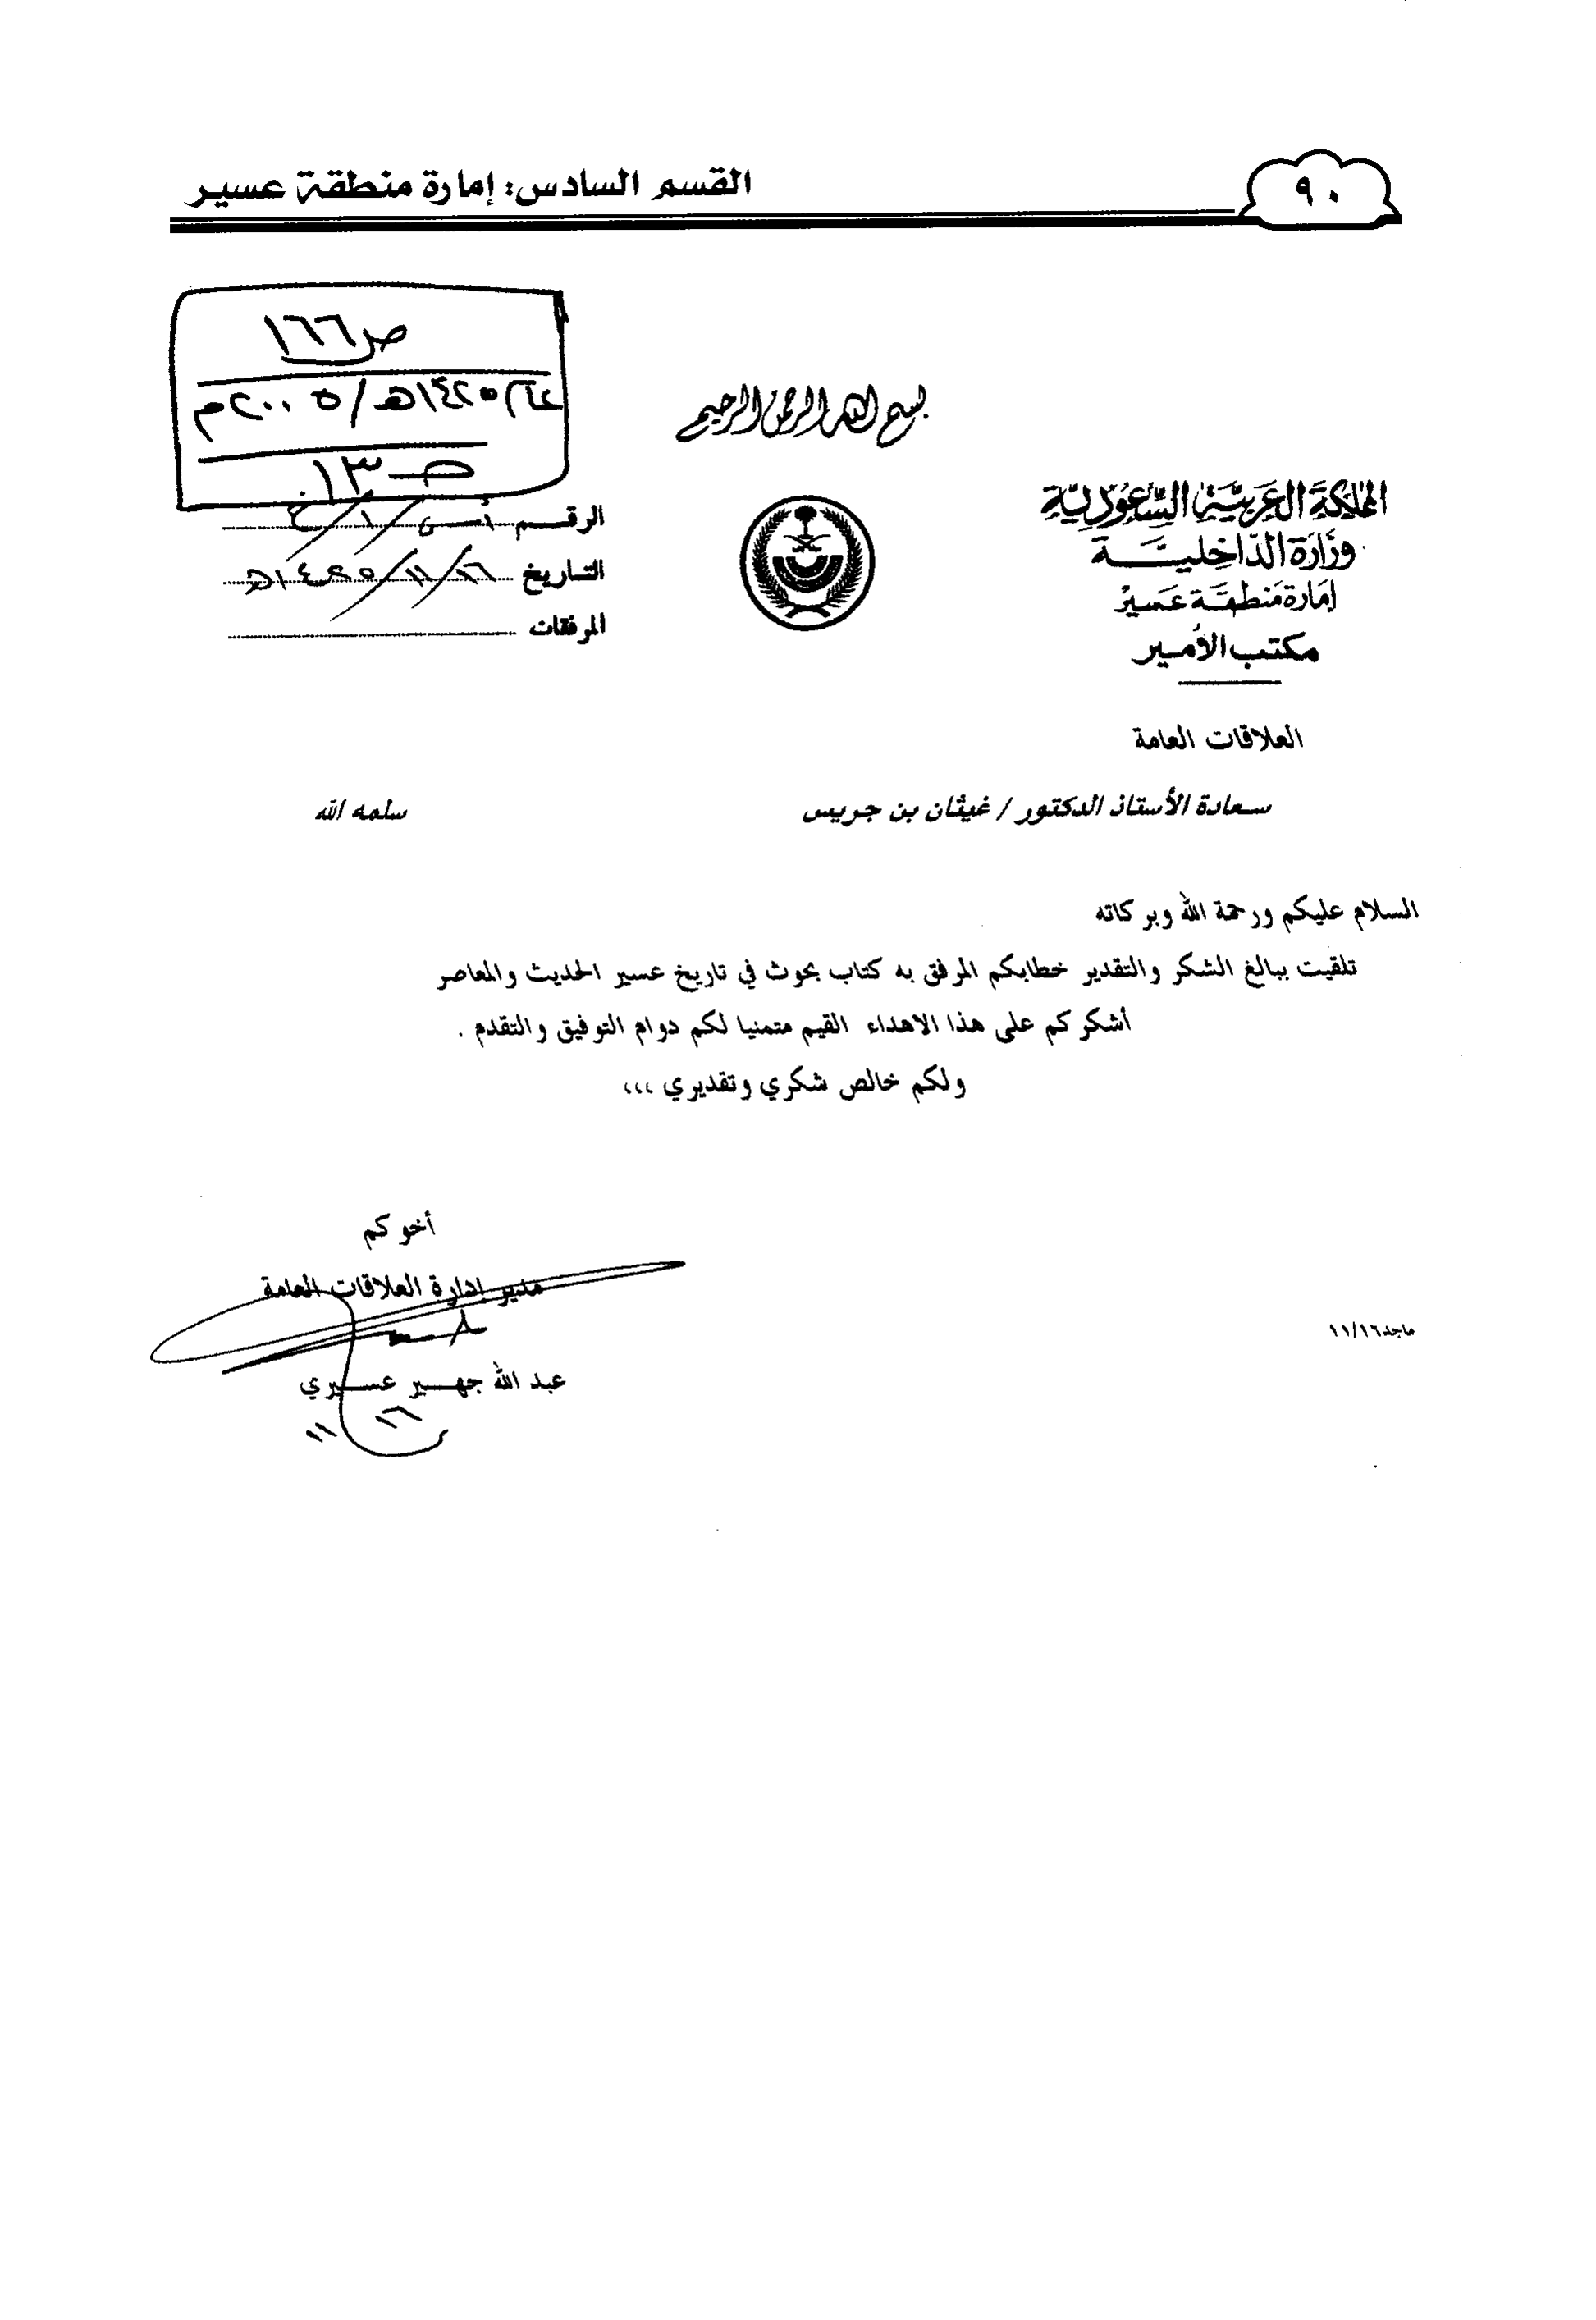 ٩٠
القسم السادس: إمارة منطقة عسير
ص ١٦٦
١٤٢٥هـ / ٢٠٠٥م
صـ ١٣
بسم الله الرحمن الرحيم
المملكة العربية السعودية
وزارة الداخلية
إمارة منطقة عسير
مكتب الأمير
الرقم
التاريخ ١٦/ ١١/ ١٤٢٥هـ
المرفقات
العلاقات العامة
سعادة الأستاذ الدكتور / غيثان بن جريس سلمه الله
السلام عليكم ورحمة الله وبركاته
تلقيت ببالغ الشكر والتقدير خطابكم المرفق به كتاب بحوث في تاريخ عسير الحديث والمعاصر
أشكركم على هذا الاهداء القيم متمنيا لكم دوام التوفيق والتقدم .
ولكم خالص شكري وتقديري ،،،
أخوكم
مدير إدارة العلاقات العامة
عبد الله جهير عسيري
١٦
١١
ماجد١١/١٦